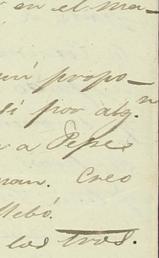 en el ma-
propo-
si por alg.n
a Pepe
Creo
llebó.
los tres.